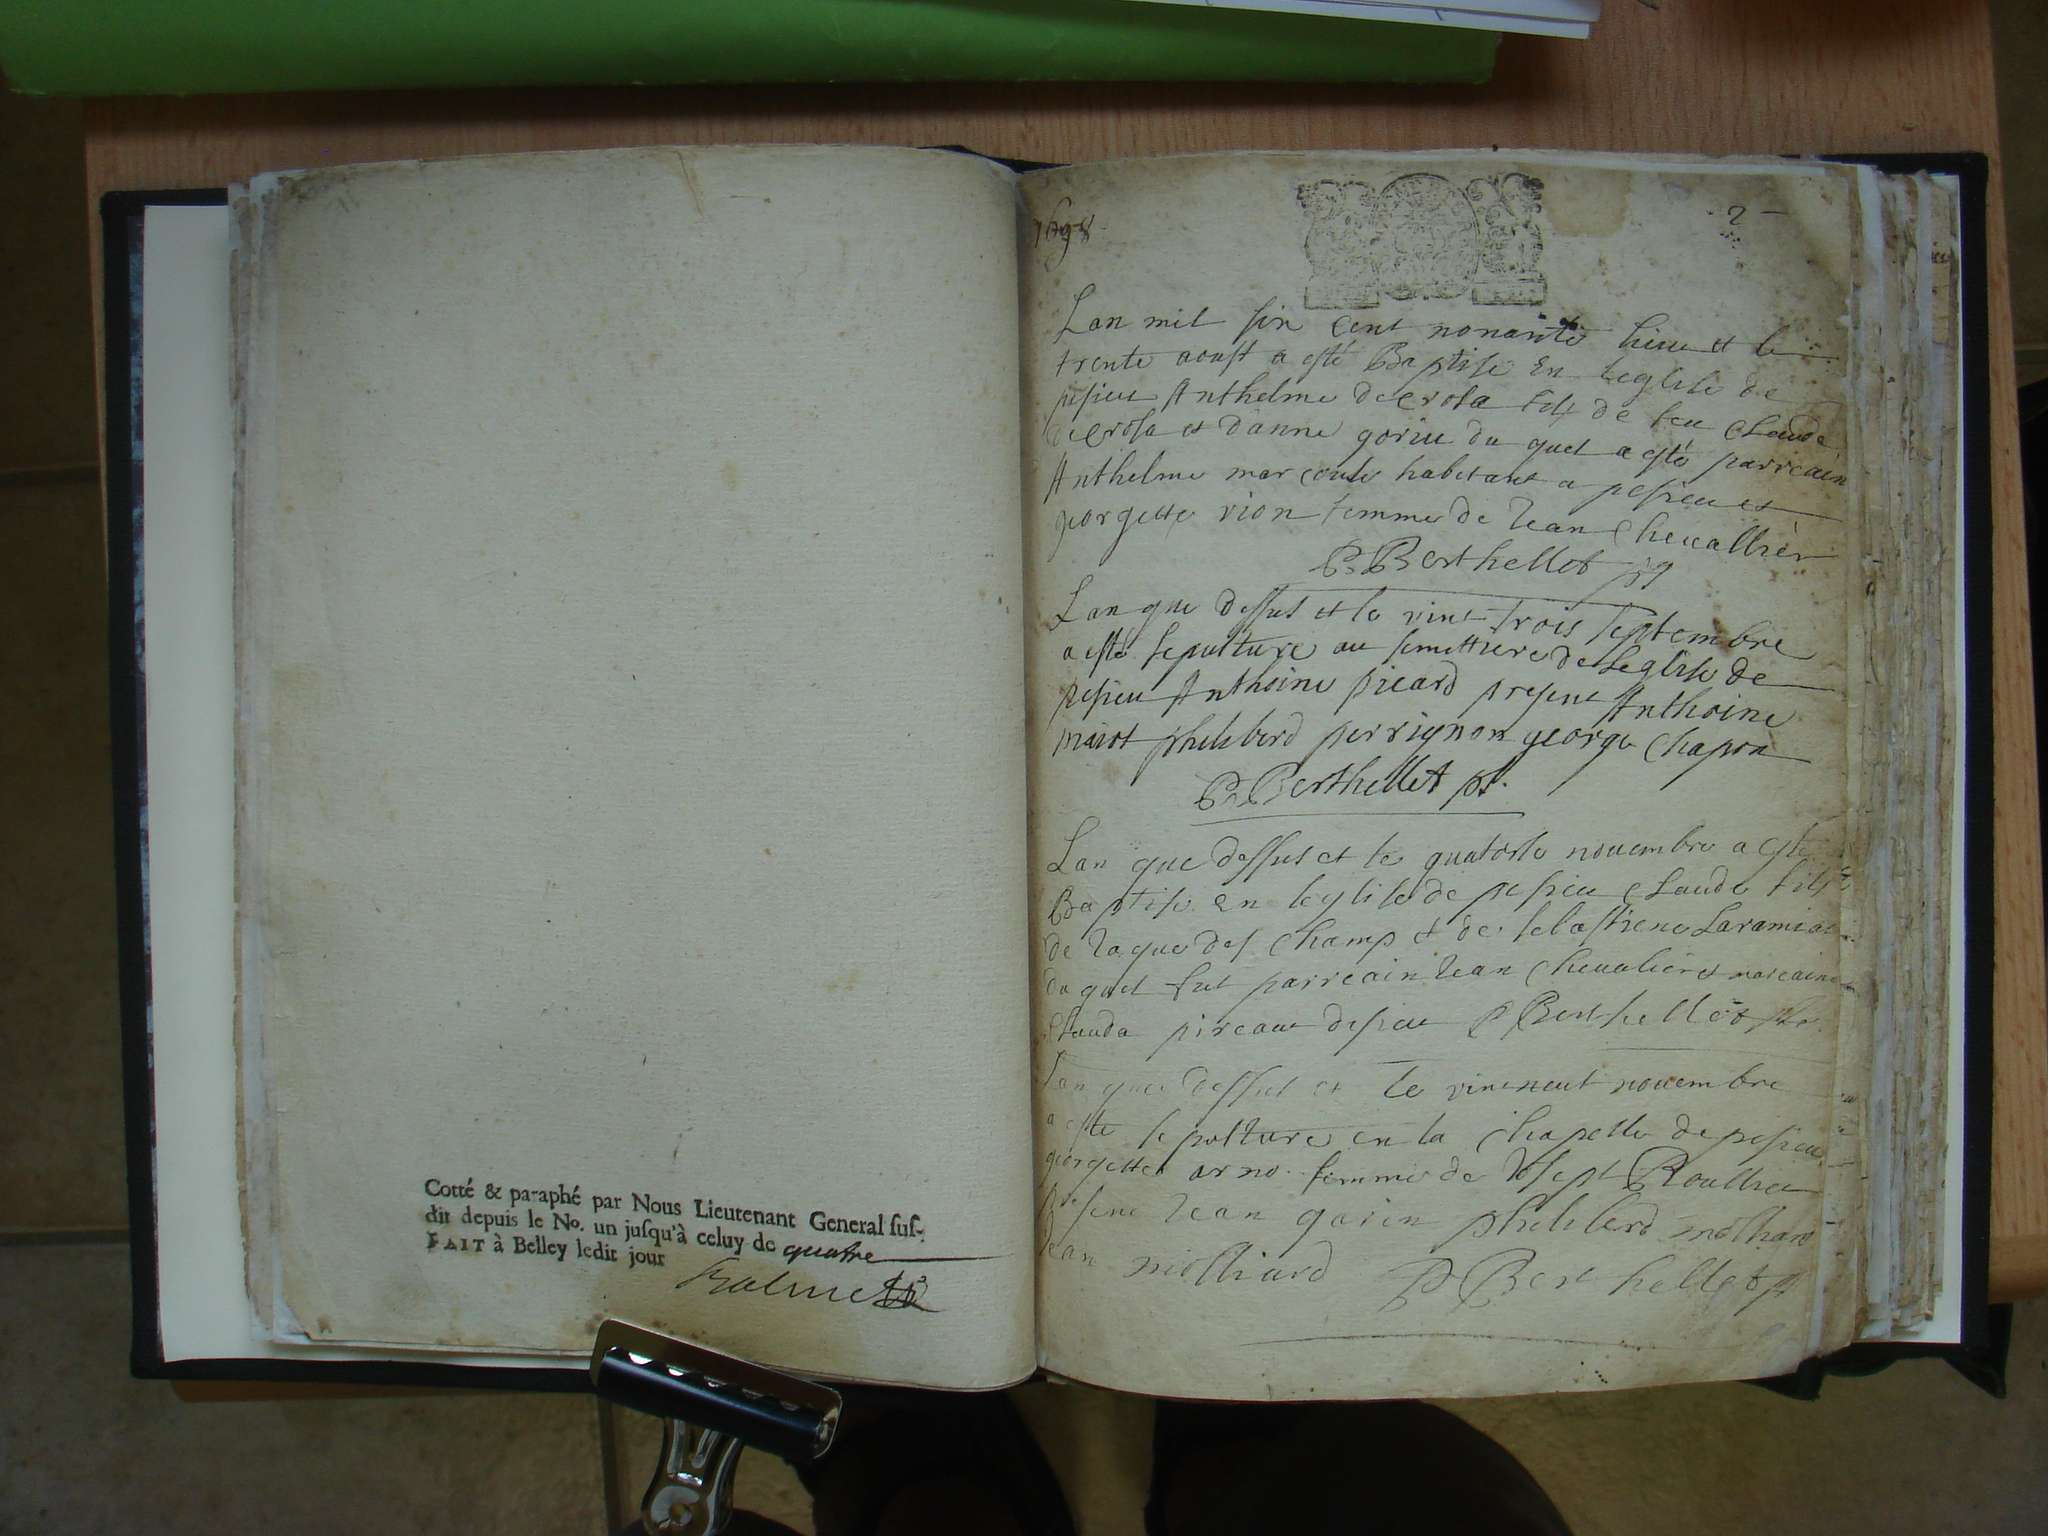 Cotté & paraphé par Nous Lieutenant General sus-
dit depuis le No. un jusqu'à celuy de quatre
FAIT à Belley ledit jour
1698
2
Lan mil six cent nonante hieu et le
trente aoust a esté Baptise En leglise de
pesieu Anthelme decrosa fils de feu Claude
decrosa et danne goriu du quel a esté parreain
Anthelme mar habitant a pesieu et
georgette rion femme de Jean Chevallier
P. Berthellot
Lan que dessus et le vint trois septembre
a esté sepulture au semettiere de leglise de
pesieu Anthoine picard present Anthoine
philiberd perrignon george Chapon
P. Berthellet
Lan que dessus et le quatorse novembre a esté
Baptise en leglise de pesieu Claude fils
de Jaque des Champ et de sebastiene Laramia
du quel fut parreain Jean Chevalier et mareaine
Clauda P Berthellet
Lan que dessus et le vint neuf novembre
a esté sepulture en la Chapelle de pesieu
georgette arno femme de Josept Roullier
Jean garin philiberd molliard
Jean molliard P Berthellet